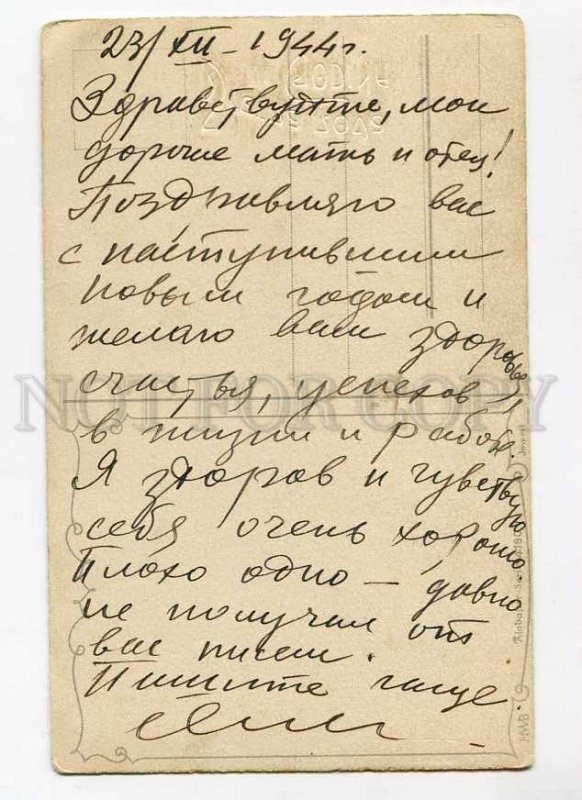 23/XII - 1944г.
Здравствуйте, мои
дорогие мать и отец!
Поздравляю вас
с наступившим
новым годом и
желаю вам здоровья,
счастья, успехов
в жизни и работе.
Я здоров и чувствую
себя очень хорошо
Плохо одно — давно
не получал от
вас писем.
Пишите чаще
NOT FOR COPY
HWB